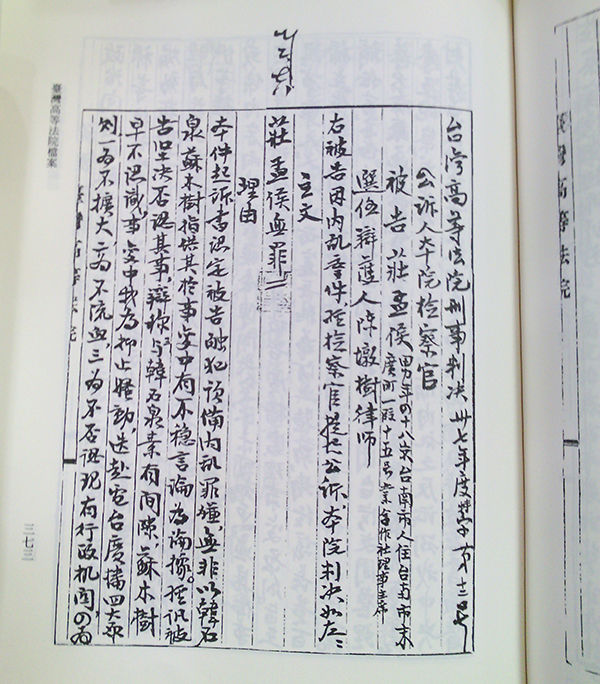 台湾高等法院刑事判决 卅七年度
公诉人本院检察官
被告莊孟侯 男年四十八岁台南市人住台南市末
廣町一段十五号業合作社理事主席
選任辯護人陳墩樹律师
右被告因内乱案件经检察官提起公诉本院判决如左:
主文
莊孟侯無罪
理由
本件起诉書認定被告触犯預備内乱罪嫌無非以韓石
泉蘇木樹指供其於事变中有不稳言論為論據。
告坚决否認其事辯称与韓石泉素有间隙,蘇木樹
早不認識,事变中我為抑止騷動,迭赴電台廣播四大原
则一為不擴大,二為不流血,三為不否認現有行政机関の為
臺灣高等法院檔案
三七三
高等法院